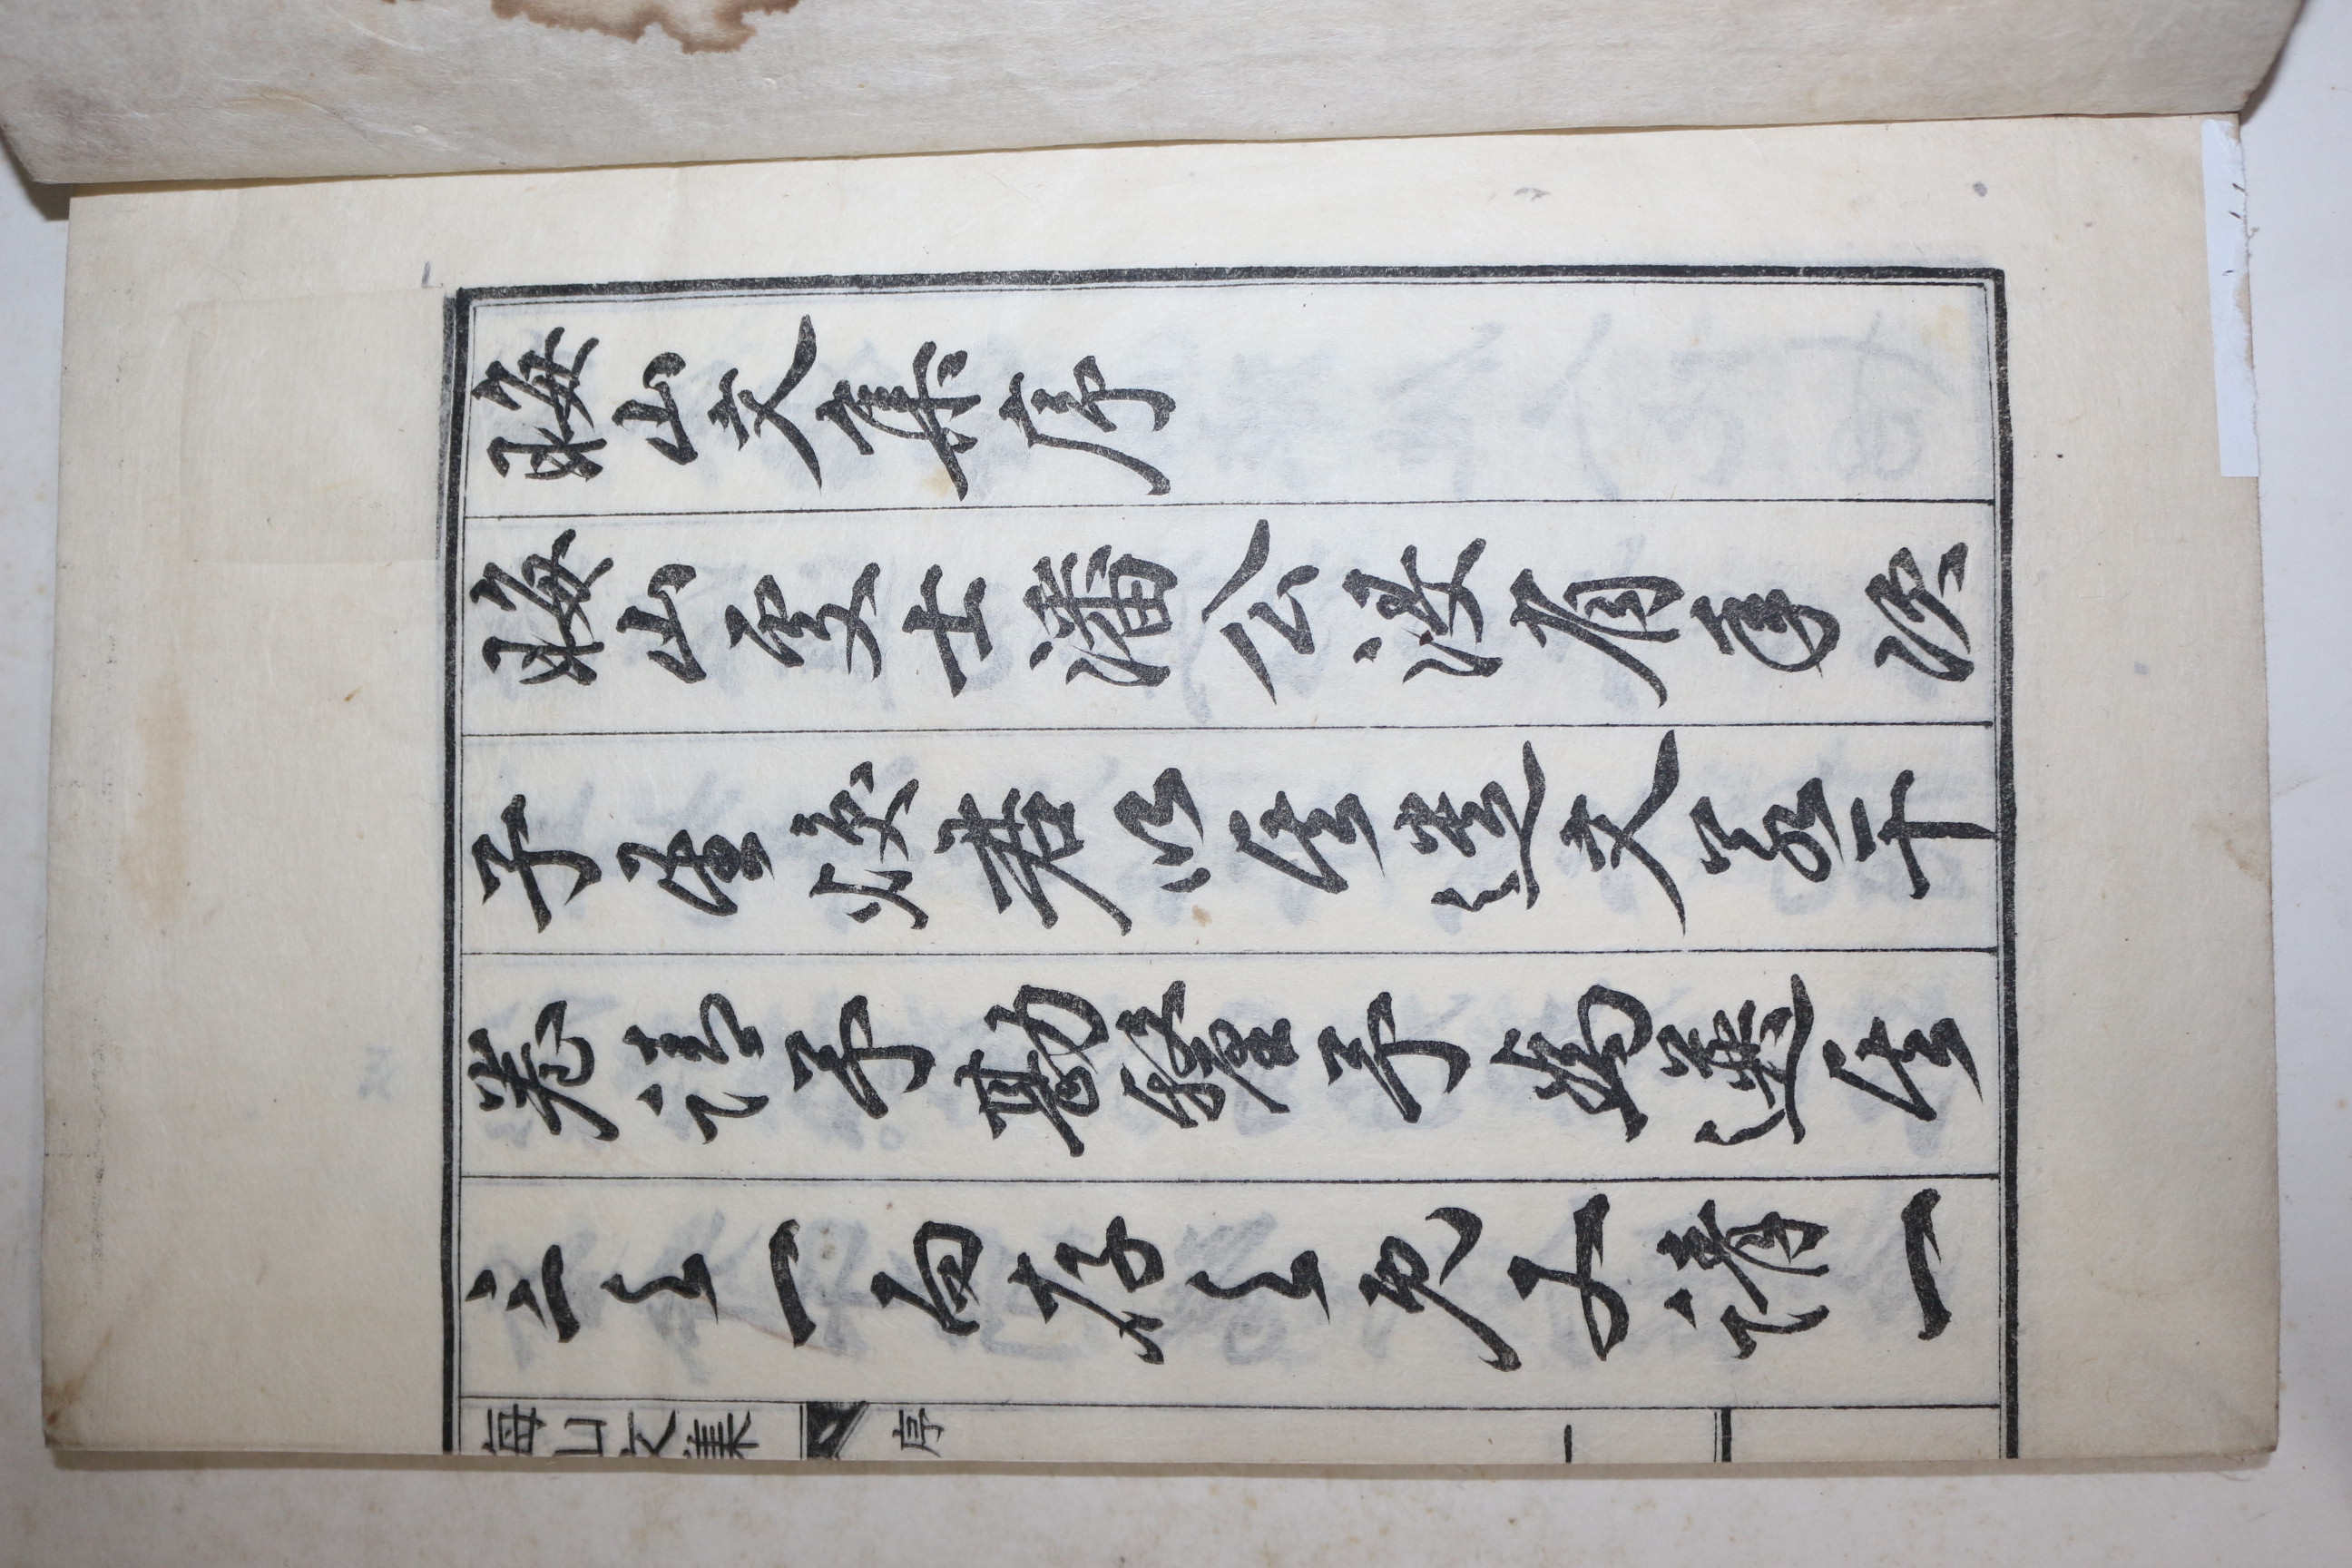 晦山文集序
晦山處士潘公沒有年次
子聖煥君以其遺文若干
卷請予勘釐予爲選其
三之一而存之既又請一
晦山文集 序 一